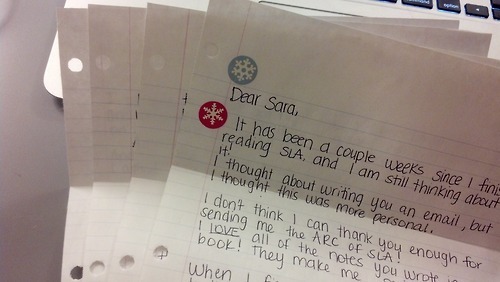 option
Dear Sara,
It has been a couple weeks since I
reading SLA, and I am still thinking about
it!
I thought about writing you an email, but
I thought this was more personal.
I don't think I can thank you enough for
sending me the ARC of SLA!
I LOVE all of the notes you wrote in
book! They make me
When I